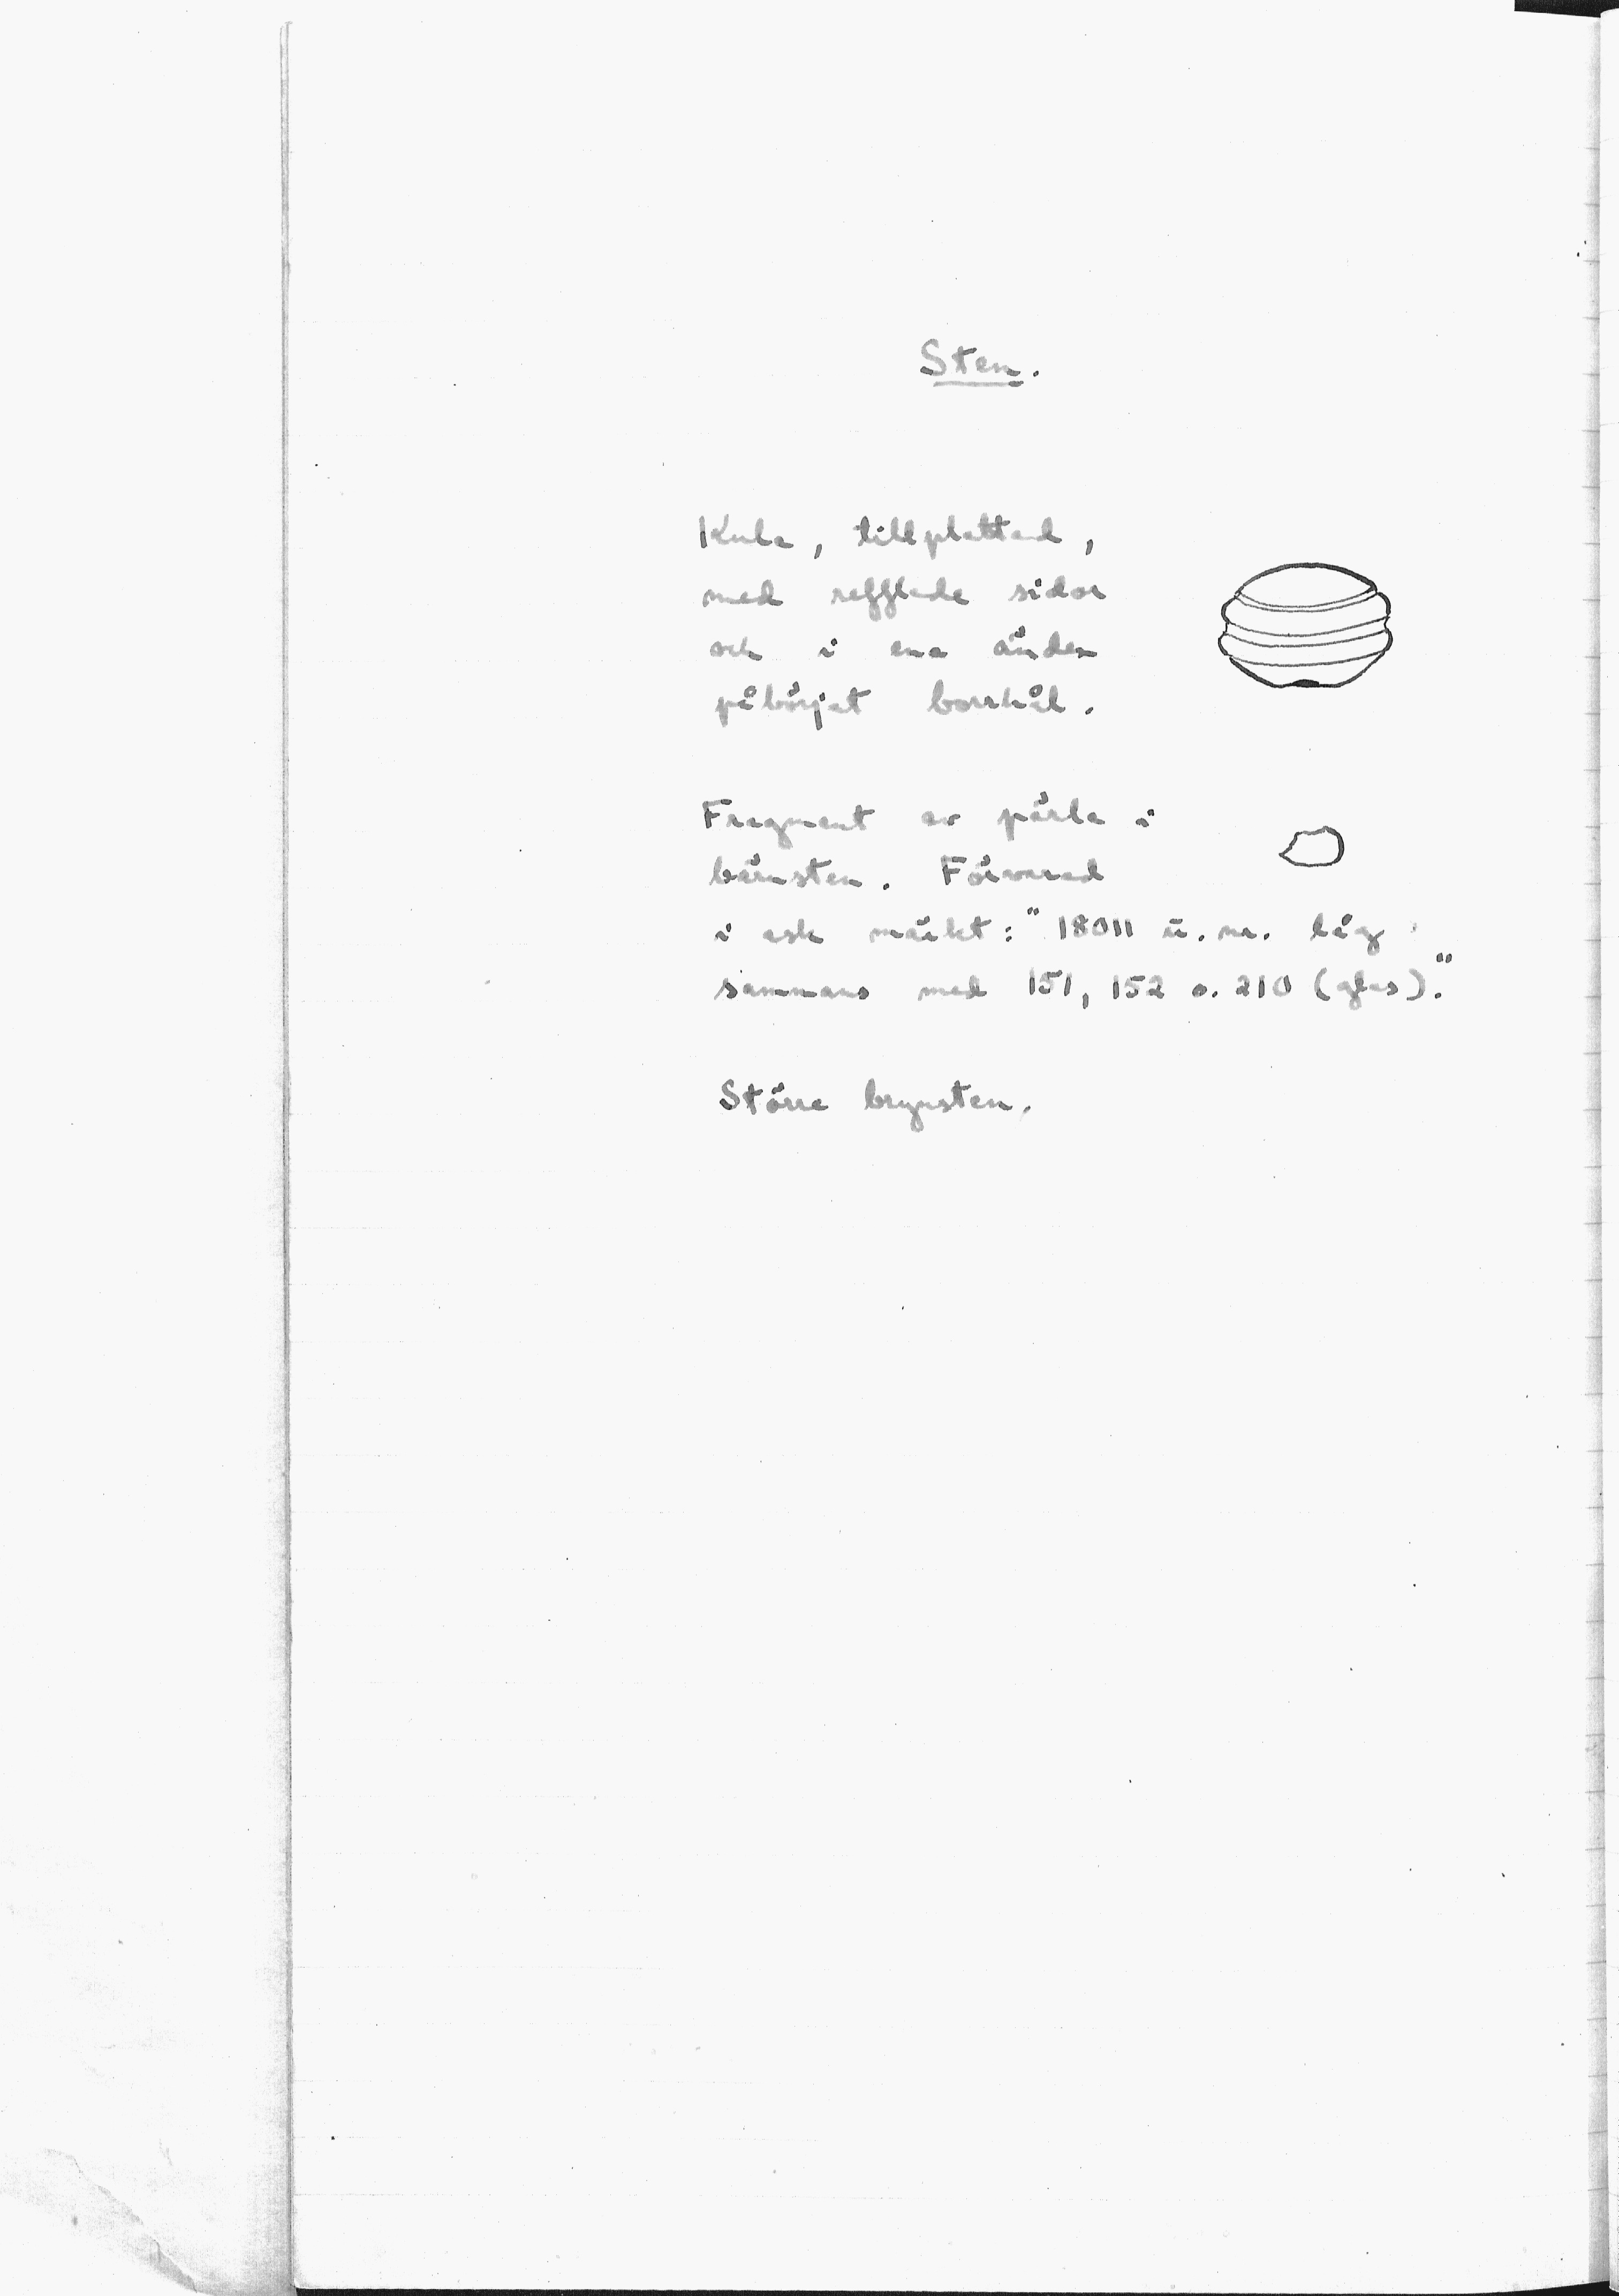 Sten.
Kula, tillplattad,
med refflade sidor
och i ena änden
påbörjat borrhål.
Fragment av pärla i
bärnsten. Förvarad
i ask märkt: "18011 u. nr. låg
sammans med 151, 152 o. 210 (glas)."
Större brynsten.